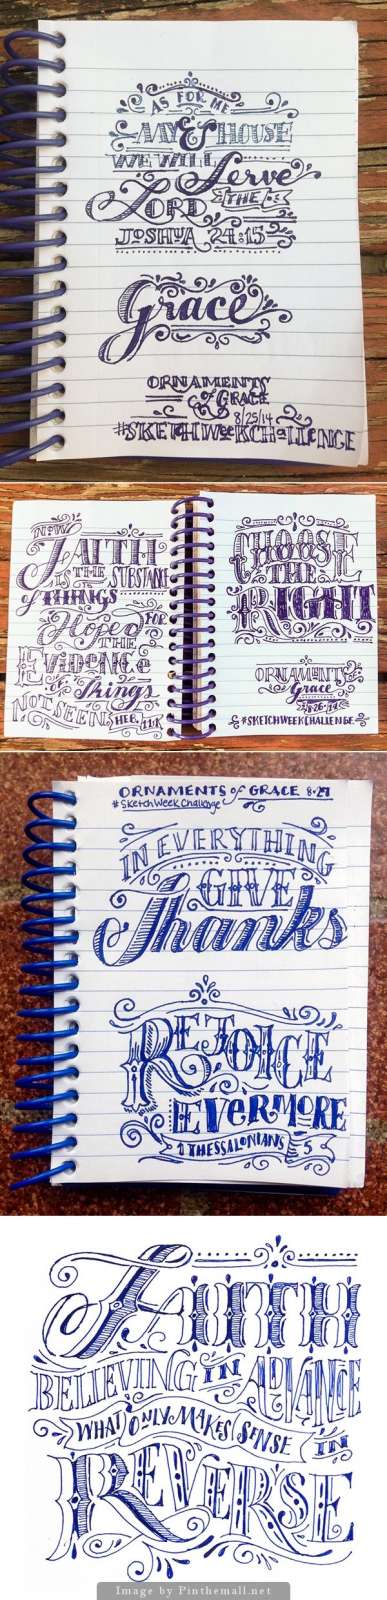 AS FOR ME
MY & HOUSE
WE WILL Serve
THE
LORD
JOSHUA 24:15
Grace
ORNAMENTS
of GRACE
8/25/14
#SKETCHWEEKCHALLENGE
NOW
FAITH
IS THE SUBSTANCE
of THINGS
Hoped FOR
THE
EVIDENCE
of Things
NOT SEEN HEB. 11:1
CHOOSE
THE
RIGHT
ORNAMENTS
of Grace
8-26-14
#SKETCHWEEKCHALLENGE
ORNAMENTS of GRACE 8·27
#SketchWeekChallenge
IN EVERYTHING
GIVE
Thanks
REJOICE
EVERMORE
1 THESSALONIANS 5
FAITH
BELIEVING IN ADVANCE
WHAT ONLY MAKES SENSE IN
REVERSE
Image by Pinthemall.net